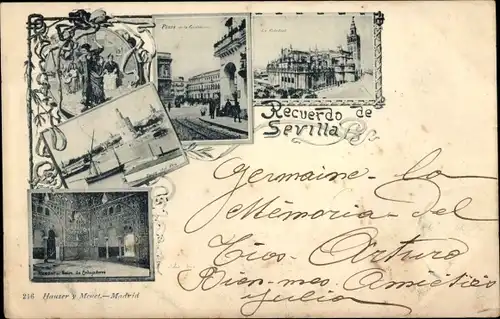 Plaza de la Constitución
La Catedral
Recuerdo de
Sevilla
Germaine - la
Mémoria - del
Tios - Arturo
Bien-mes
Julia
Salon de Embajadores
216 Hauser y Menet.—Madrid